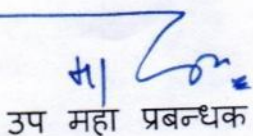 उप महा प्रबन्धक